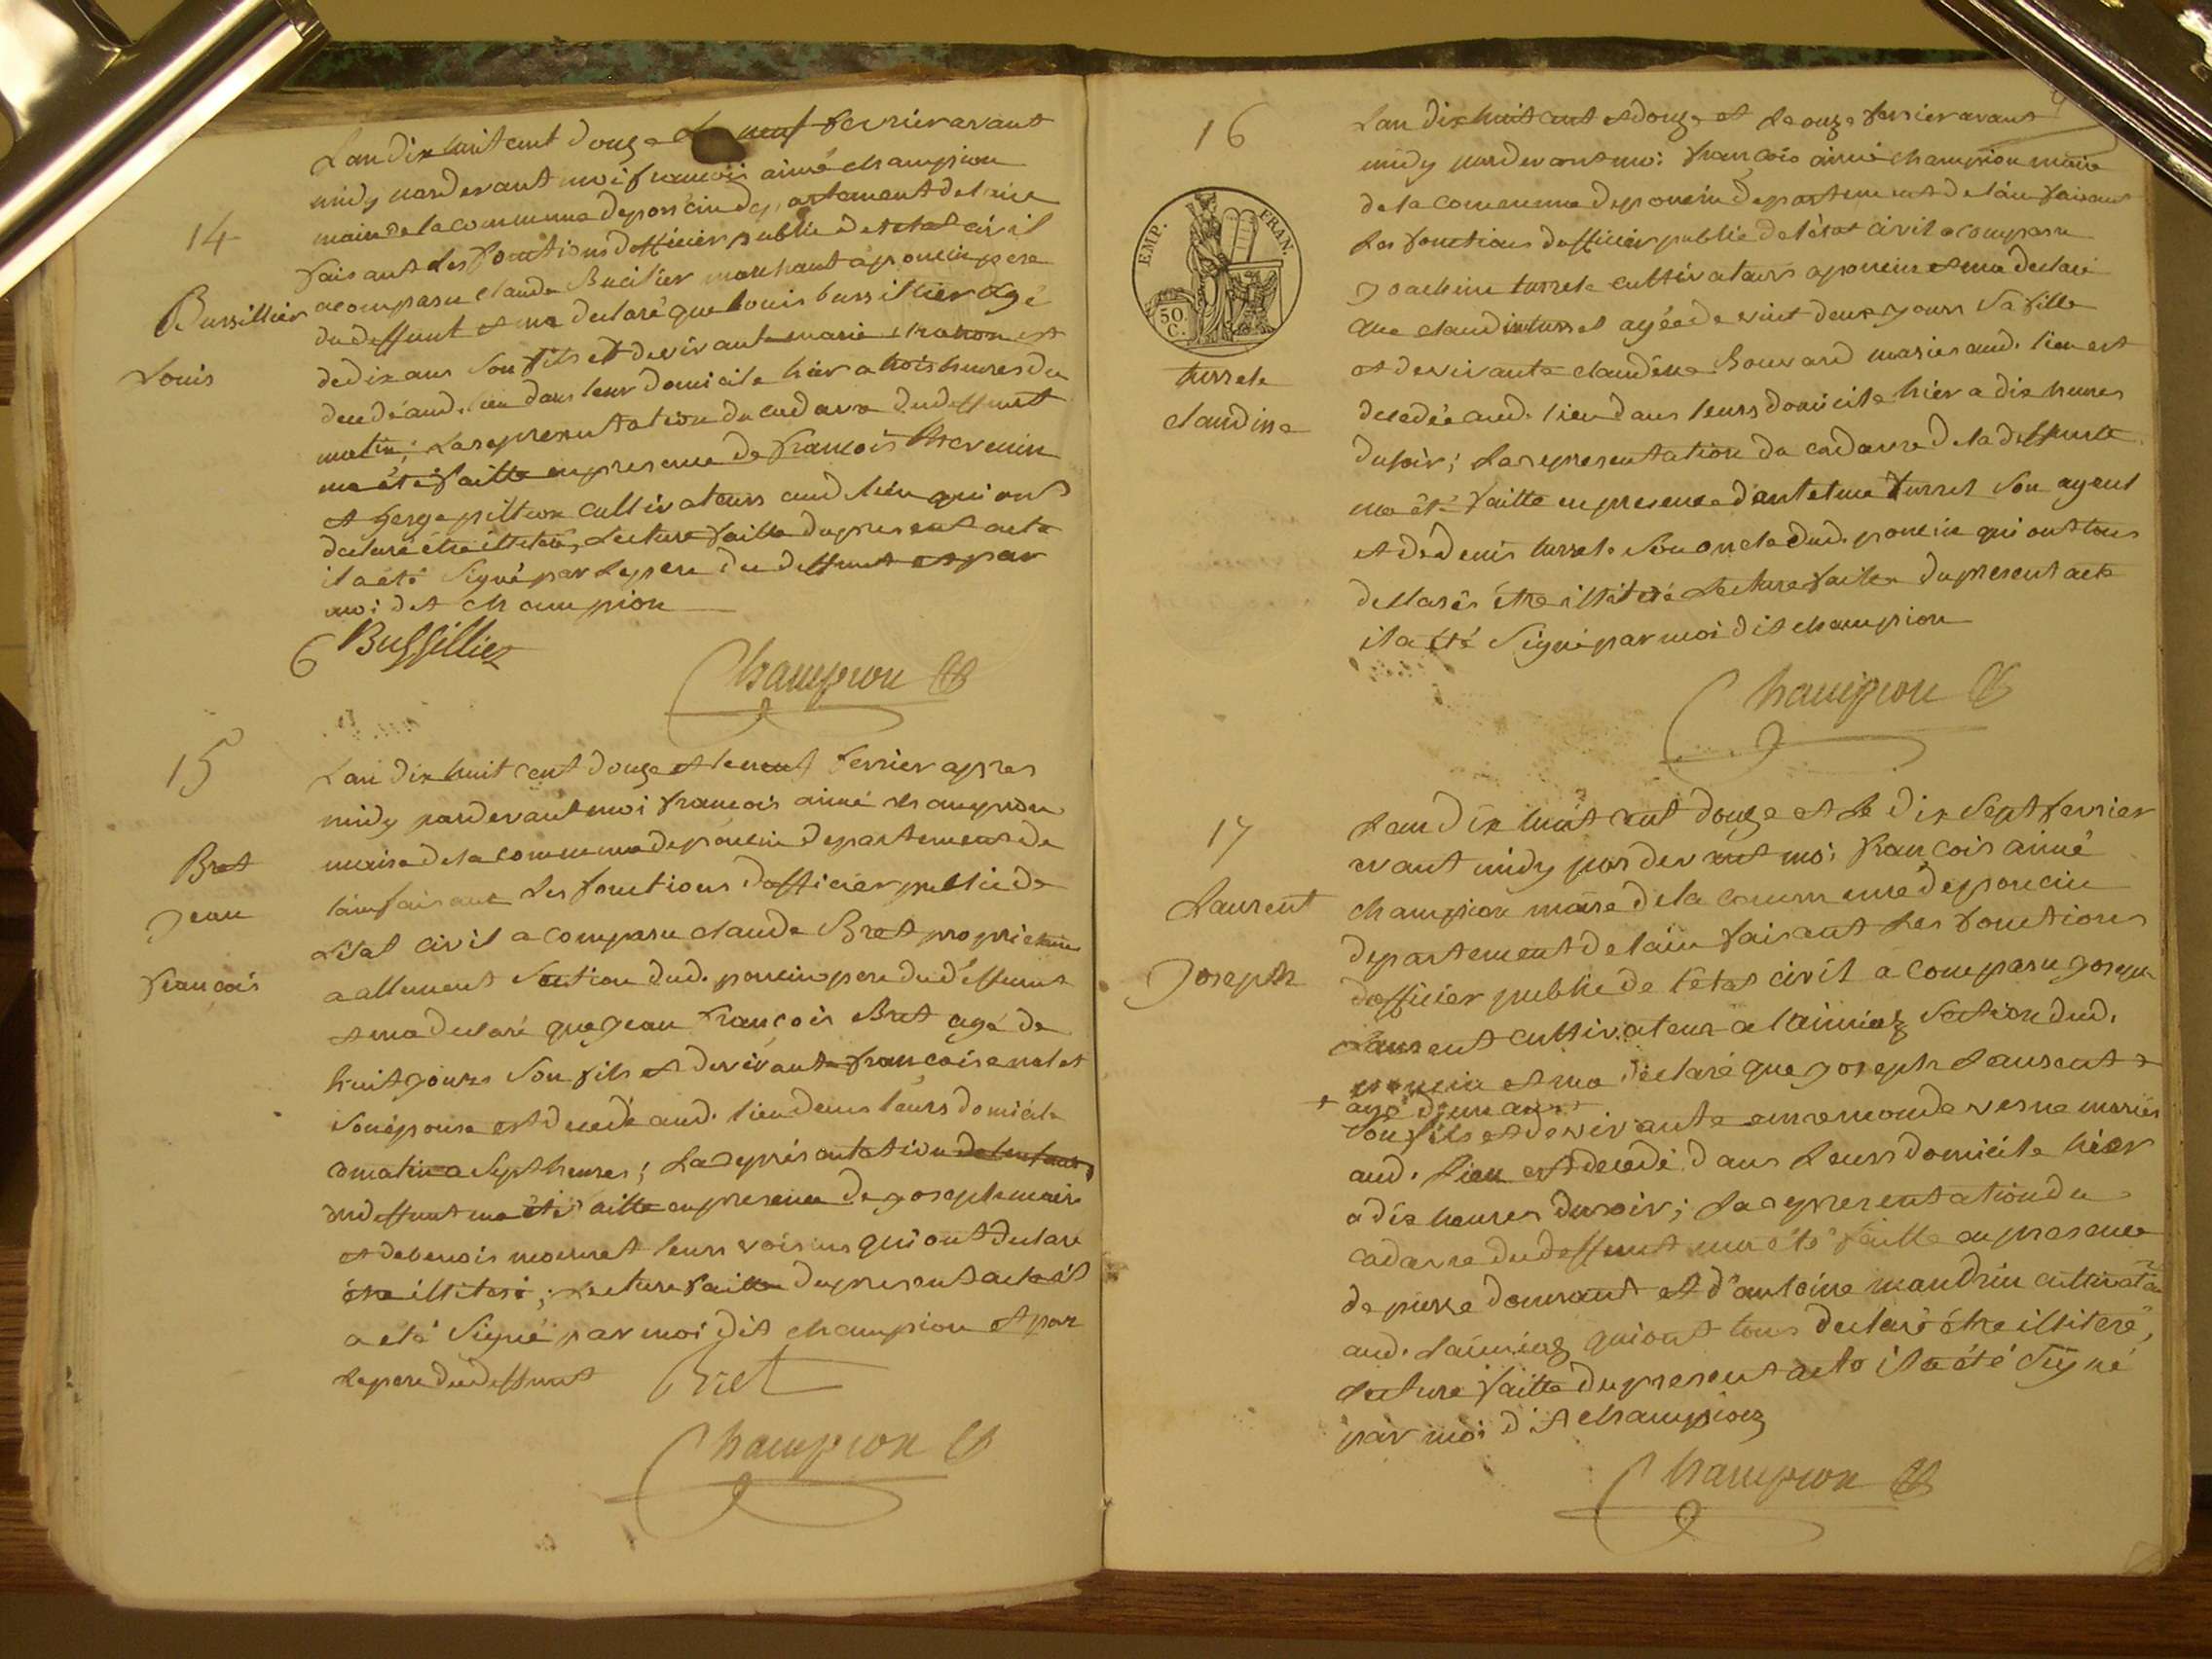 14
Bussillier
Louis
Lan dix huit cent douze et le neuf fevrier avant
midy pardevant moi francois aimé champion
maire de la commune de poncin departement de lain
faisant Les fonctions dofficier public de letat civil
a comparu claude Bucilier marchant a poncin pere
du deffunt et ma declaré que Louis bussillier agé
de dix ans son fils et de vivante marie est
decedé aud. lieu dans leur domicile hier a trois heures du
matin; La representation du cadavre dudeffunt
ma été faitte en presence de francois thevenin
et cultivateurs aud lieu qui ont
declaré étre illiteré, Lecture faitte du present acte
il a été signé par Le pere du deffunt et par
moi dit champion
C Bussillier
Champion
15
Bret
Jean
francois
Lan dix huit cent douze et le neuf fevrier apres
midy pardevant moi francois aimé champion
maire de la commune de poncin departement de
lain faisant Les fonctions dofficier public de
Létat civil a comparu claude Bret proprietaire
a allement Section dud. poncin pere du deffunt
et ma declaré que jean françois Bret agé de
huit jours son fils et de vivante francoise
son épouse est decedé aud. lieu dans leurs domicile
ce matin a sept heures; La representation de lenfant
dudeffunt ma été faitte en presence de joseph maire
et de benois mornet leurs voisins qui ont declaré
étre illiteré; Lecture faitte du present acte il
a eté signé par moi dit champion et par
Le pere du deffunt
Bret
Champion
16
EMP. FRAN.
50. C.
turrel
claudine
Lan dix huit cent et douze et Le onze fevrier avant
midy pardevant moi francois aimé champion maire
de la commune de poncin departement de lain faisant
Les fonctions dofficier public de létat civil a comparu
joachim turrel cultivateurs a poncin et ma declaré
que claudine turrel agée de vint deux jours sa fille
et de vivante claudine Bouvard mariés aud. lieu est
decedée aud. lieu dans leurs domicile hier a dix heures
du soir; La representation du cadavre de la deffunte
ma été faitte en presence dantelme turrel son ayeul
et de denis turrel son oncle dud. poncin qui ont tous
declarés étre illiteré Lecture faitte du present acte
il a été signé par moi dit champion
Champion
17
Laurent
Joseph
Lan dix huit cent douze et Le dix sept fevrier
avant midy pardevant moi françois aimé
champion maire de la commune de poncin
departement de lain faisant Les fonctions
dofficier public de l'état civil a comparu joseph
Laurent cultivateur a Section dud.
poncin et ma déclaré que joseph Laurent +
+ agé d'un an +
son fils et de vivante mariés
aud. Lieu est decedé dans Leurs domicile hier
a dix heures du soir; La representation du
cadavre du deffunt ma été faitte en presence
de pierre et d'antoine mandrin cultivateurs
aud. qui ont tous declaré étre illiteré,
Lecture faitte du present acte il a été signé
par moi dit champion
Champion